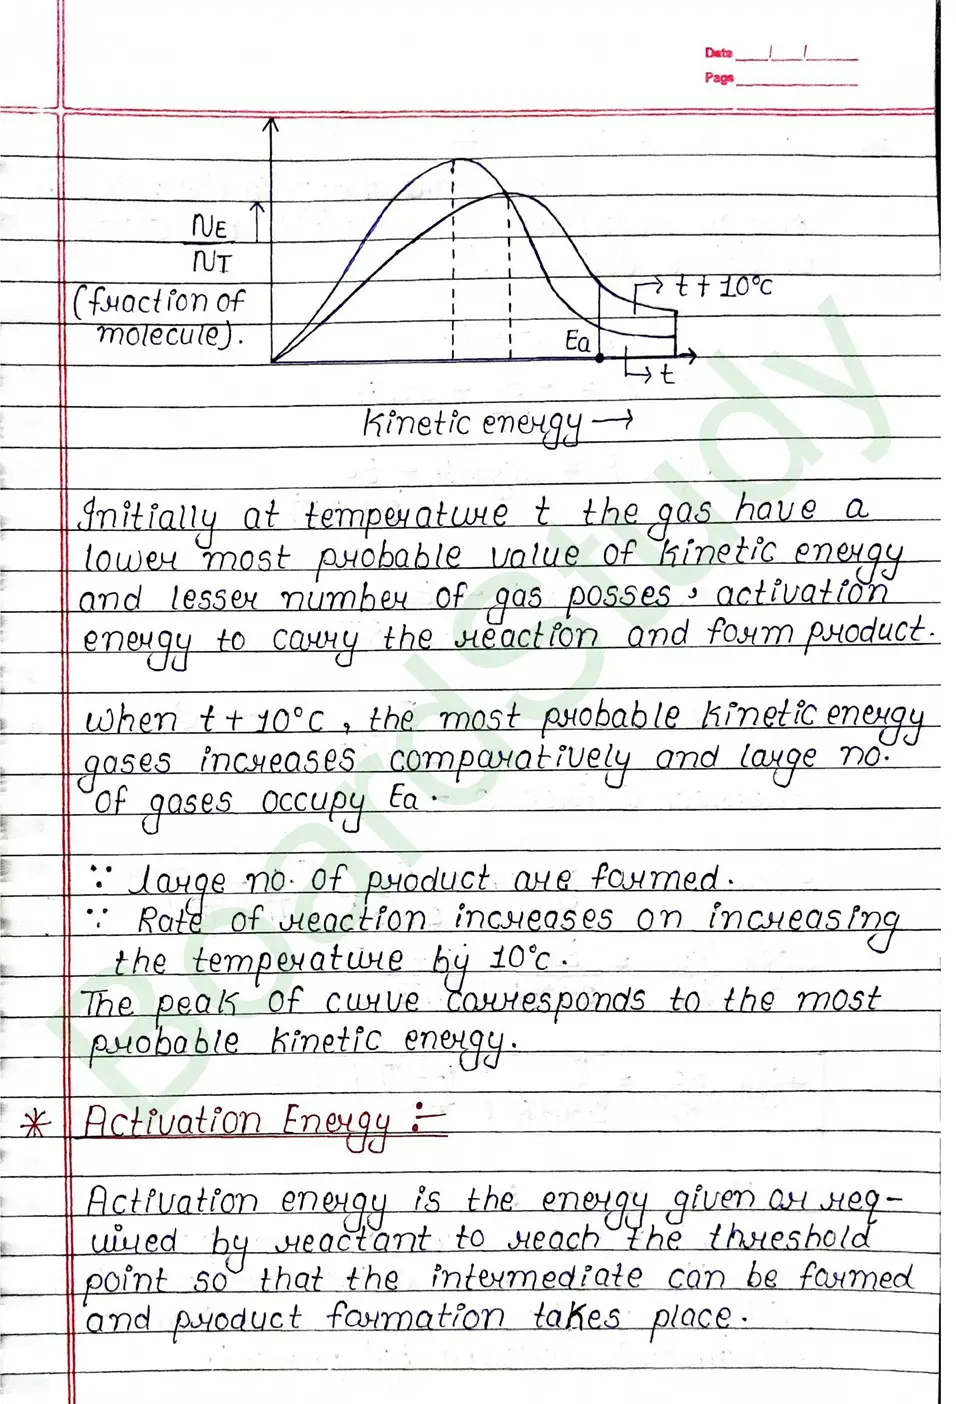 Date / /
Page
NE
NT
(fraction of
molecule).
t + 10°C
Ea
t
Kinetic energy →
Initially at temperature t the gas have a
lower most probable value of kinetic energy
and lesser number of gas posses, activation
energy to carry the reaction and form product.
When t + 10°C, the most probable kinetic energy
gases increases comparatively and large no.
of gases occupy Ea.
∵ large no. of product are formed.
∵ Rate of reaction increases on increasing
the temperature by 10°C.
The peak of curve corresponds to the most
probable kinetic energy.
* Activation Energy :-
Activation energy is the energy given or req-
uired by reactant to reach the threshold
point so that the intermediate can be formed
and product formation takes place.
BoardStudy